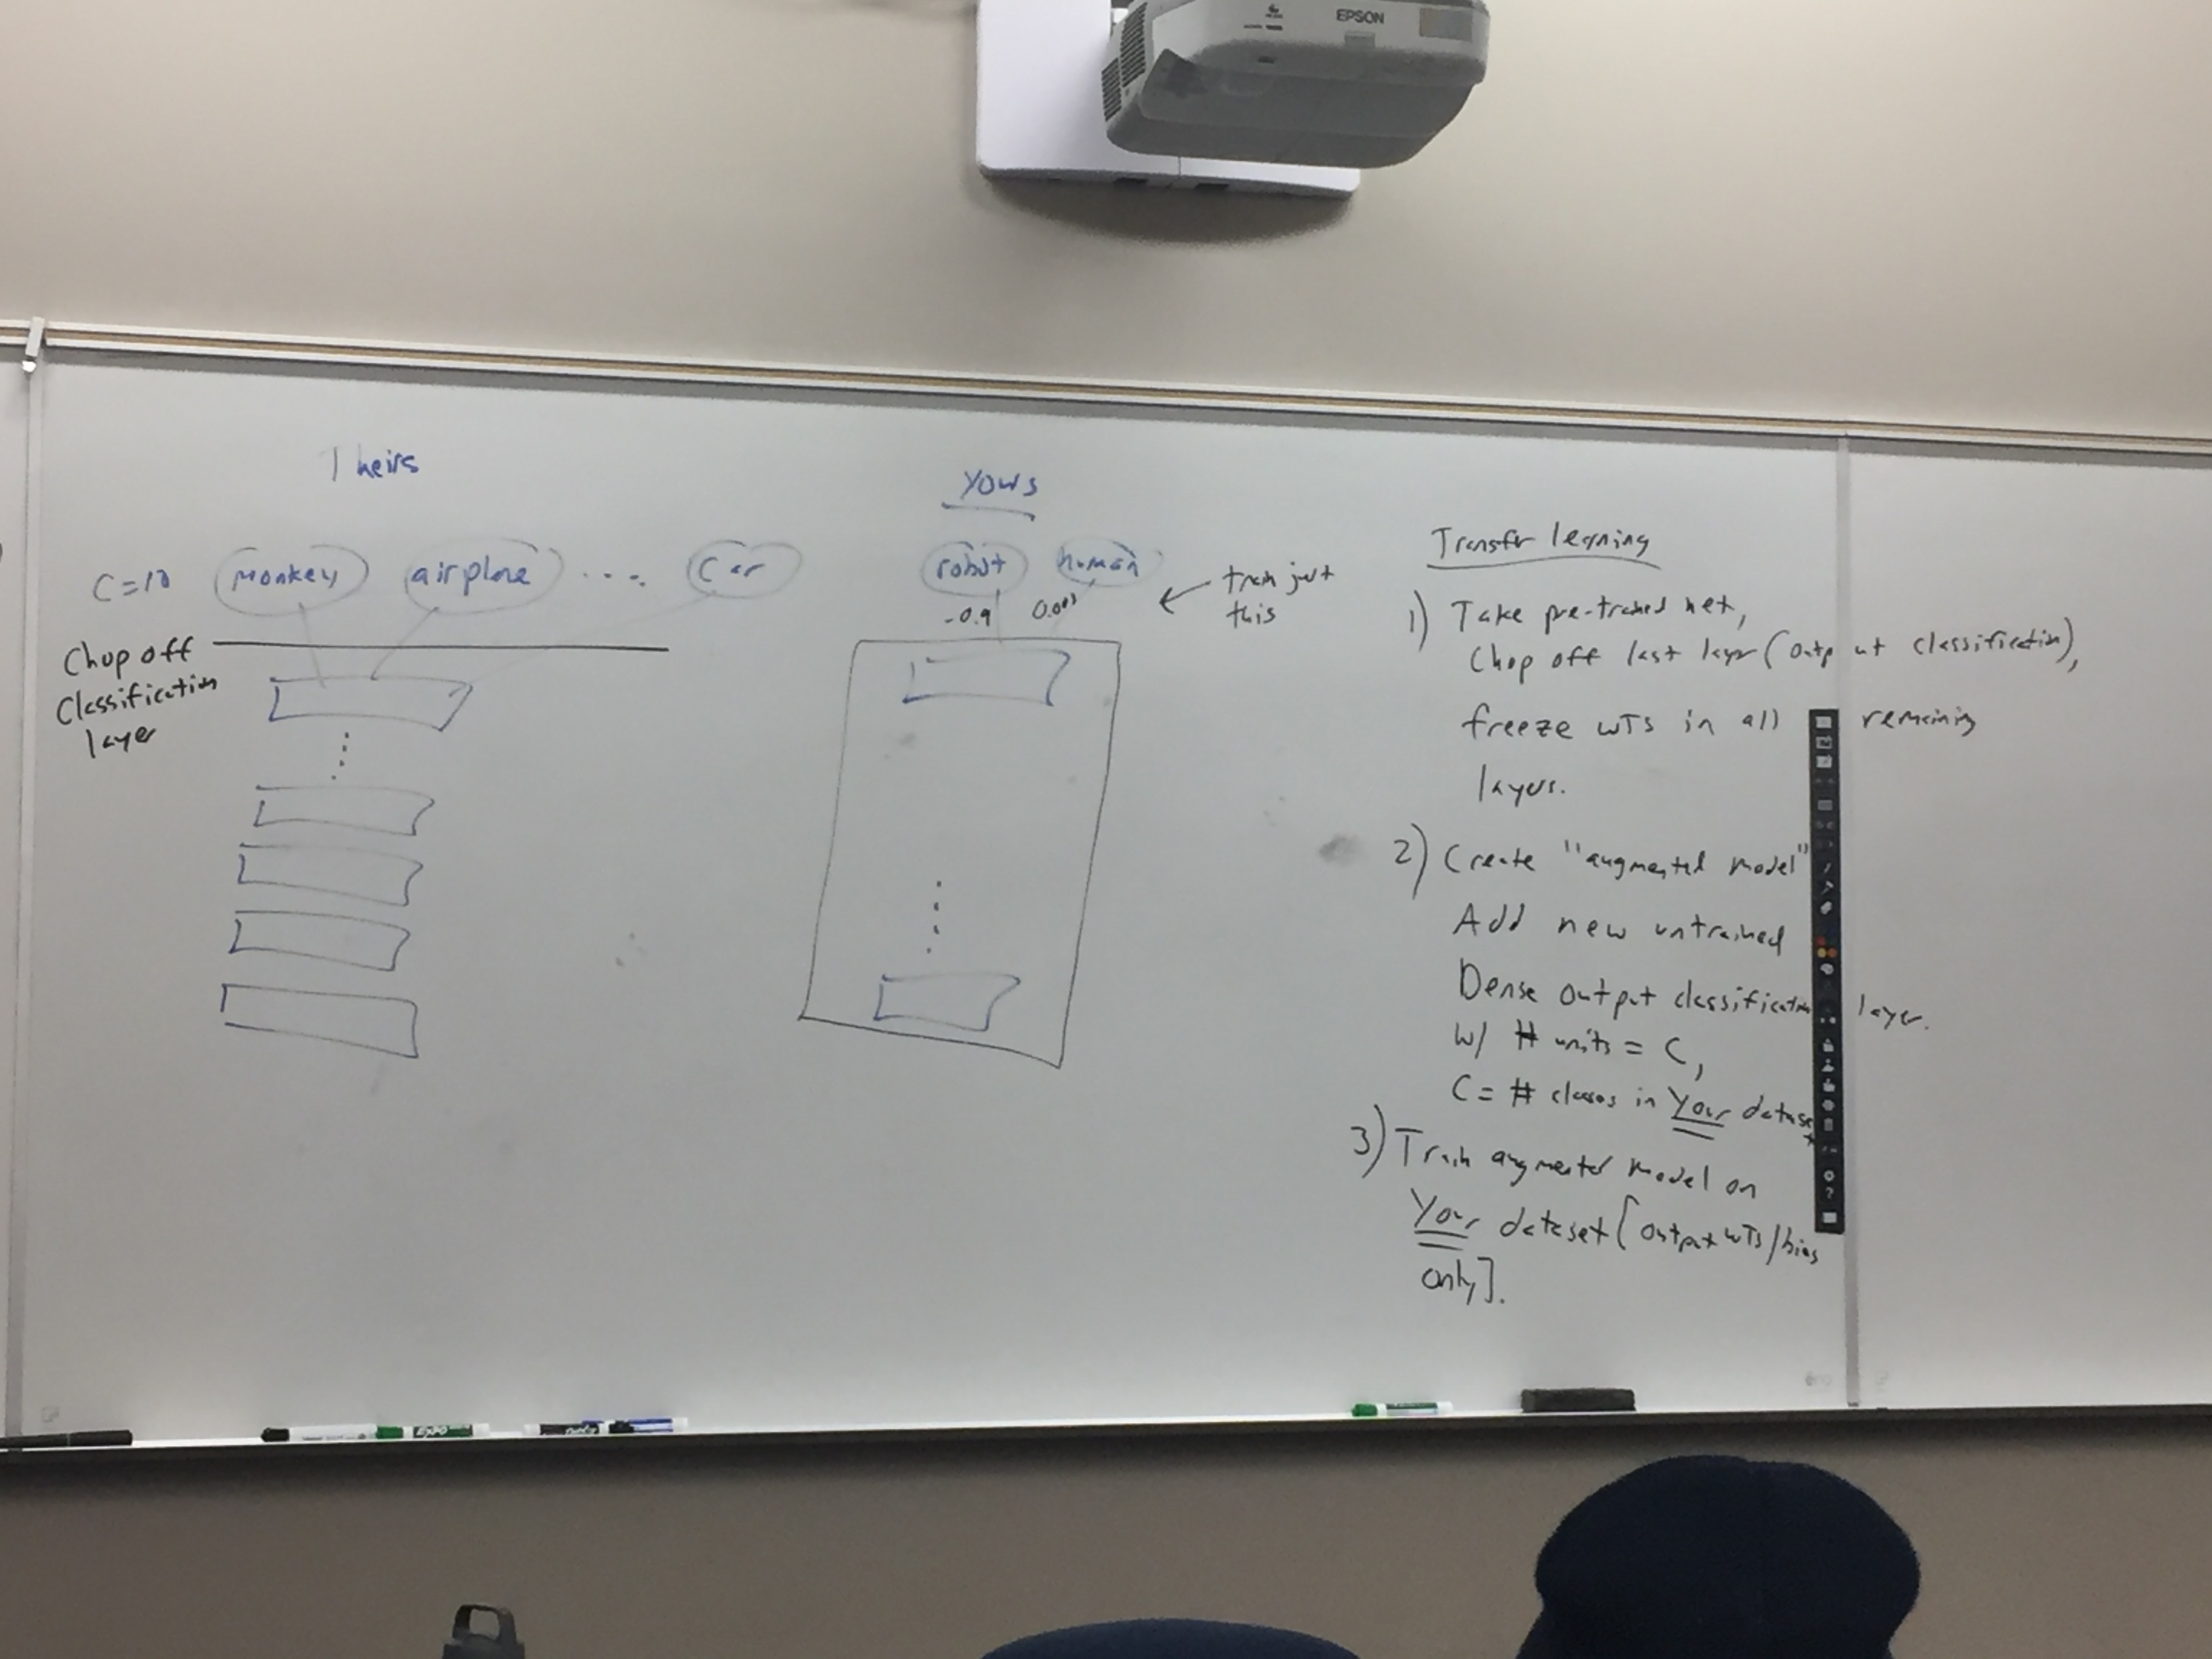 EPSON
Theirs
C=10 monkey airplane .... Car
Chop off
Classification
layer
Yours
robot human
-0.9 0.001
← train just
this
Transfer learning
1) Take pre-trained net,
Chop off last layer (output classification),
freeze wTs in all remaining
layers.
2) Create "augmented model"
Add new untrained
Dense output classification layer.
w/ # units = C,
C = # classes in Your dataset
3) Train augmented model on
Your dataset [output wTs/bias
only].
EXPO